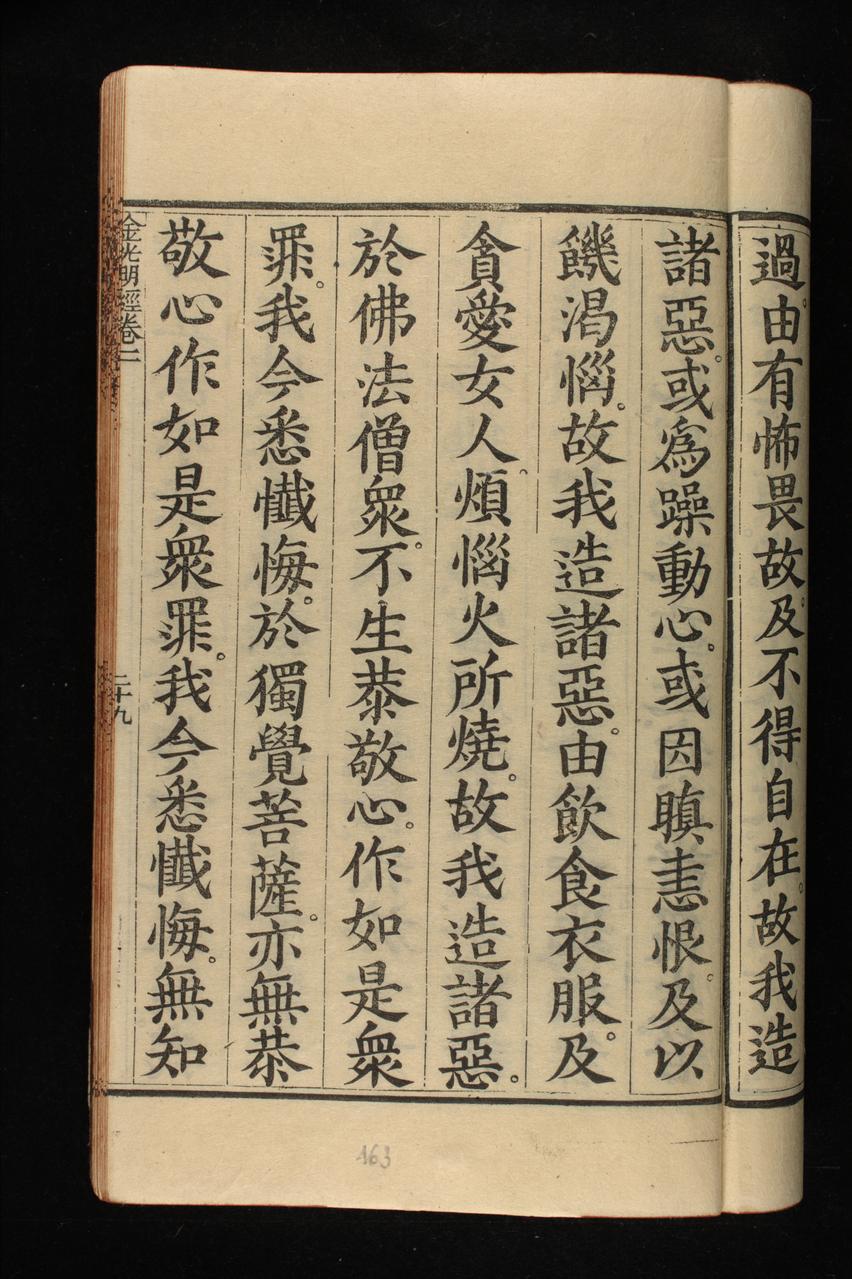 過。由有怖畏故。及不得自在。故我造
諸惡。或爲躁動心。或因瞋恚恨。及以
饑渴惱。故我造諸惡。由飲食衣服。及
貪愛女人。煩惱火所燒。故我造諸惡。
於佛法僧衆。不生恭敬心。作如是衆
罪。我今悉懺悔。於獨覺菩薩。亦無恭
敬心作如是衆罪。我今悉懺悔。無知
金光明經卷二
二十九
163